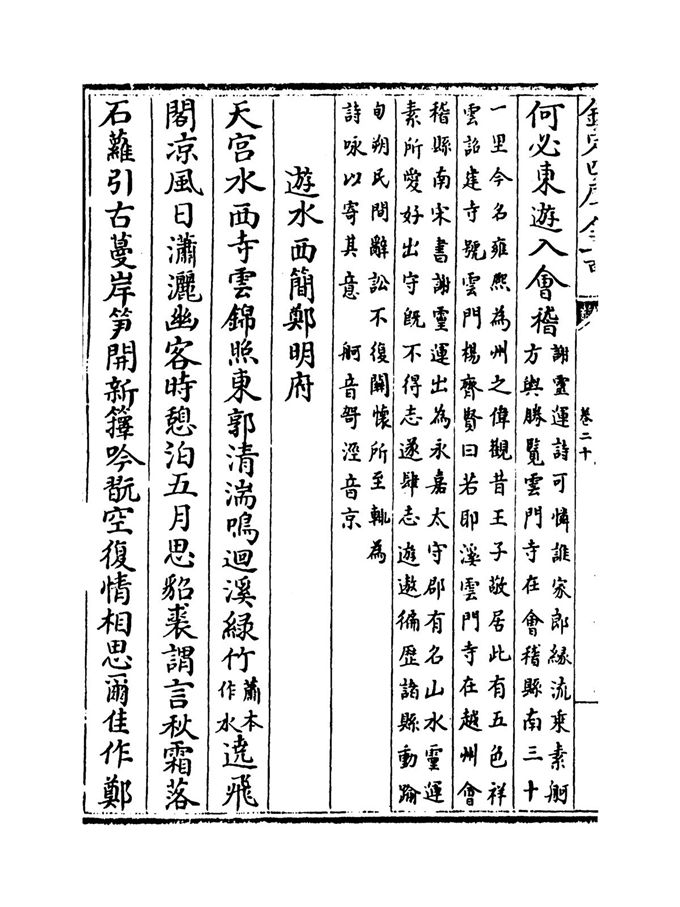 欽定四庫全書
卷二十
何必東遊入會稽
謝靈運詩可憐誰家郎緣流乘素舸
方輿勝覽雲門寺在會稽縣南三十
一里今名雍熙為州之偉觀昔王子敬居此有五色祥
雲詔建寺號雲門楊齊賢曰若耶溪雲門寺在越州會
稽縣南宋書謝靈運出為永嘉太守郡有名山水靈運
素所愛好出守既不得志遂肆志遊遨徧歷諸縣動踰
旬朔民間辭訟不復關懷所至輒為
詩咏以寄其意 舸音哿涇音京
遊水西簡鄭明府
天宮水西寺雲錦照東郭清湍鳴迴溪綠竹蕭本作水遶飛
閣凉風日瀟灑幽客時憩泊五月思貂裘謂言秋霜落
石蘿引古蔓岸笋開新籜吟翫空復情相思爾佳作鄭